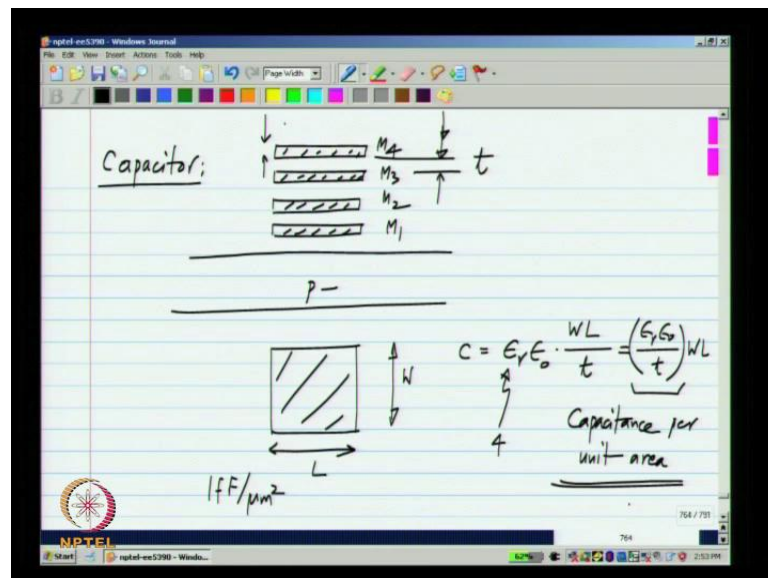 nptel-ee5390 - Windows Journal
File Edit View Insert Actions Tools Help
Page Width
B I
Capacitor:
M4
M3
M2
M1
t
p-
W
L
C = ϵr ϵ0 · WL/t = (ϵr ϵ0/t) WL
4
Capacitance per
unit area
1fF/μm²
764 / 791
764
NPTEL
Start nptel-ee5390 - Windo... 62% 2:53 PM